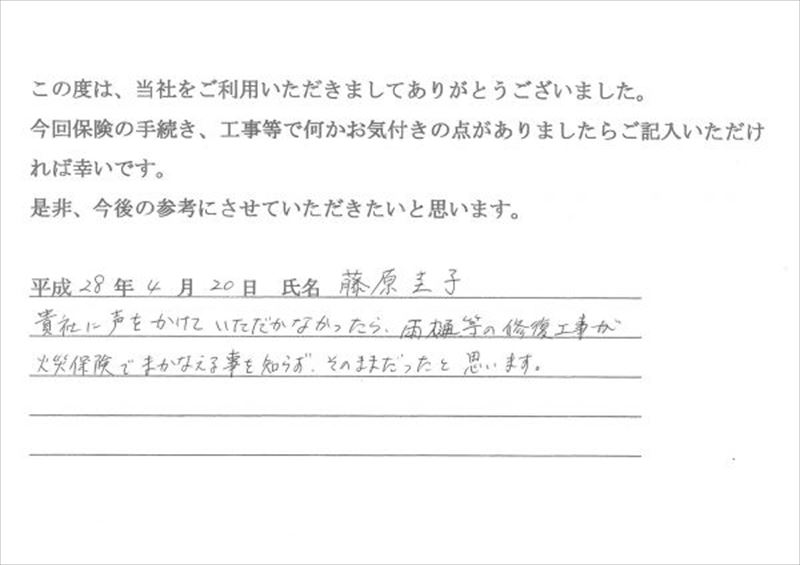 この度は、当社をご利用いただきましてありがとうございました。
今回保険の手続き、工事等で何かお気付きの点がありましたらご記入いただけ
れば幸いです。
是非、今後の参考にさせていただきたいと思います。
平成 28 年 4 月 20 日 氏名 藤原圭子
貴社に声をかけていただかなかったら、雨樋等の修復工事が
火災保険でまかなえる事を知らず、そのままだったと思います。